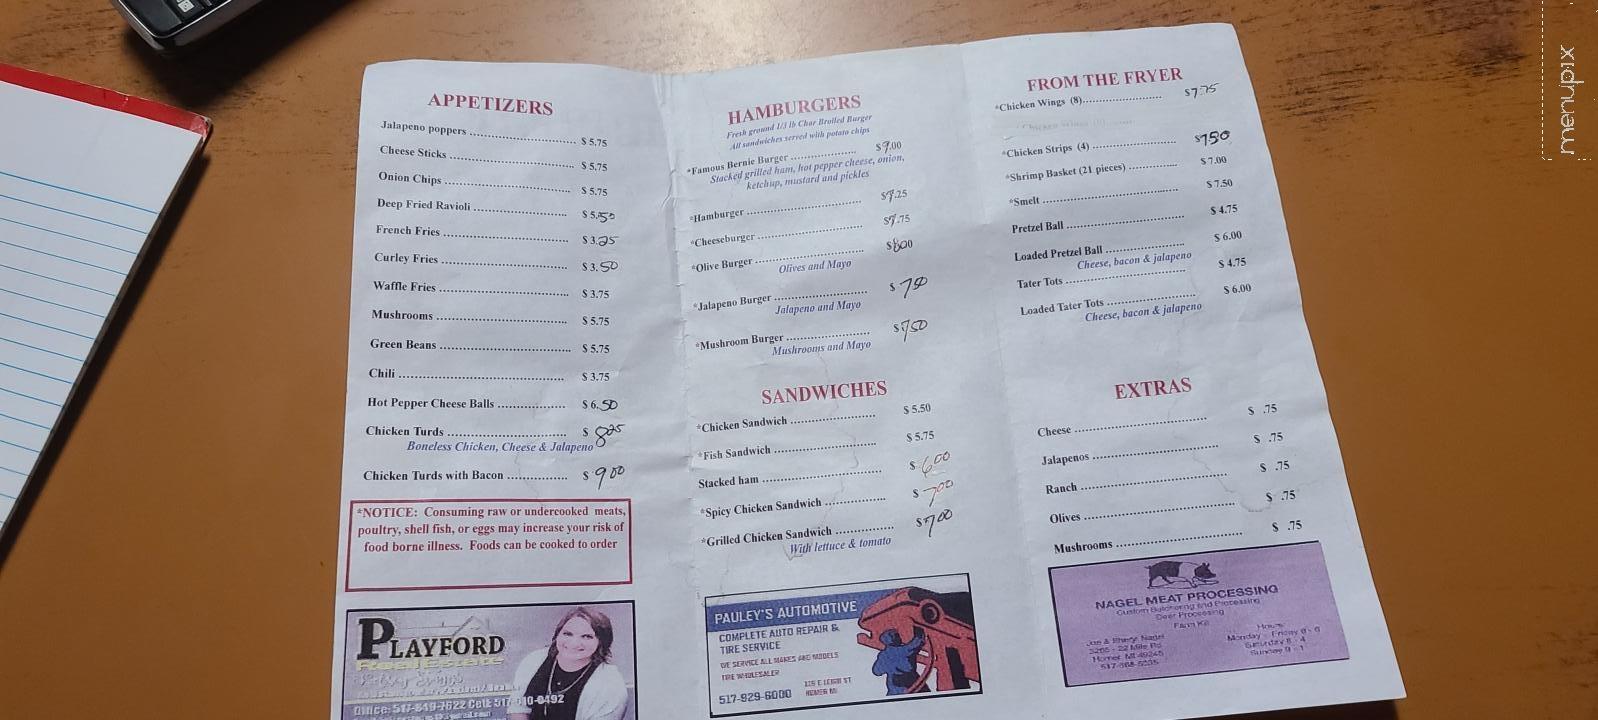 menupix
APPETIZERS
Jalapeno poppers ........................... $ 5.75
Cheese Sticks ........................... $ 5.75
Onion Chips ........................... $ 5.75
Deep Fried Ravioli ........................... $ 5.50
French Fries ........................... $ 3.25
Curley Fries ........................... $ 3.50
Waffle Fries ........................... $ 3.75
Mushrooms ........................... $ 5.75
Green Beans ........................... $ 5.75
Chili ........................... $ 3.75
Hot Pepper Cheese Balls .................. $ 6.50
Chicken Turds ........................... $ 8.25
Boneless Chicken, Cheese & Jalapeno
Chicken Turds with Bacon ............... $ 9.00
*NOTICE: Consuming raw or undercooked meats,
poultry, shell fish, or eggs may increase your risk of
food borne illness. Foods can be cooked to order
PLAYFORD
Real Estate
Office: 517-849-7622 Cell: 517
HAMBURGERS
Fresh ground 1/3 lb Char Broiled Burger
All sandwiches served with potato chips
*Famous Bernie Burger ................ $9.00
Stacked grilled ham, hot pepper cheese, onion,
ketchup, mustard and pickles
*Hamburger ........................... $7.25
*Cheeseburger ........................... $7.75
*Olive Burger ........................... $800
Olives and Mayo
*Jalapeno Burger ........................ $ 750
Jalapeno and Mayo
*Mushroom Burger ..................... $750
Mushrooms and Mayo
SANDWICHES
*Chicken Sandwich ..................... $ 5.50
*Fish Sandwich ........................ $ 5.75
Stacked ham ........................... $ 600
*Spicy Chicken Sandwich ............... $ 700
*Grilled Chicken Sandwich .............. $700
With lettuce & tomato
PAULEY'S AUTOMOTIVE
COMPLETE AUTO REPAIR &
TIRE SERVICE
WE SERVICE ALL MAKES AND MODELS
TIRE WHOLESALER
517-929-6000
LEIGH ST
HOMER MI
FROM THE FRYER
*Chicken Wings (8)........................ $7.75
*Chicken Strips (4) ........................ $750
*Shrimp Basket (21 pieces) ............... $ 7.00
*Smelt ........................... $ 7.50
Pretzel Ball ........................... $ 4.75
Loaded Pretzel Ball ..................... $ 6.00
Cheese, bacon & jalapeno
Tater Tots ........................... $ 4.75
Loaded Tater Tots ..................... $ 6.00
Cheese, bacon & jalapeno
EXTRAS
Cheese ........................... $ .75
Jalapenos ........................... $ .75
Ranch ........................... $ .75
Olives ........................... $ .75
Mushrooms ........................... $ .75
NAGEL MEAT PROCESSING
Custom Butchering and Processing
Deer Processing
Farm Kill
22 Mile Rd
Homer MI 49245
Hours
Monday - Friday 8 - 6
Saturday 8 - 4
Sunday 9 - 1